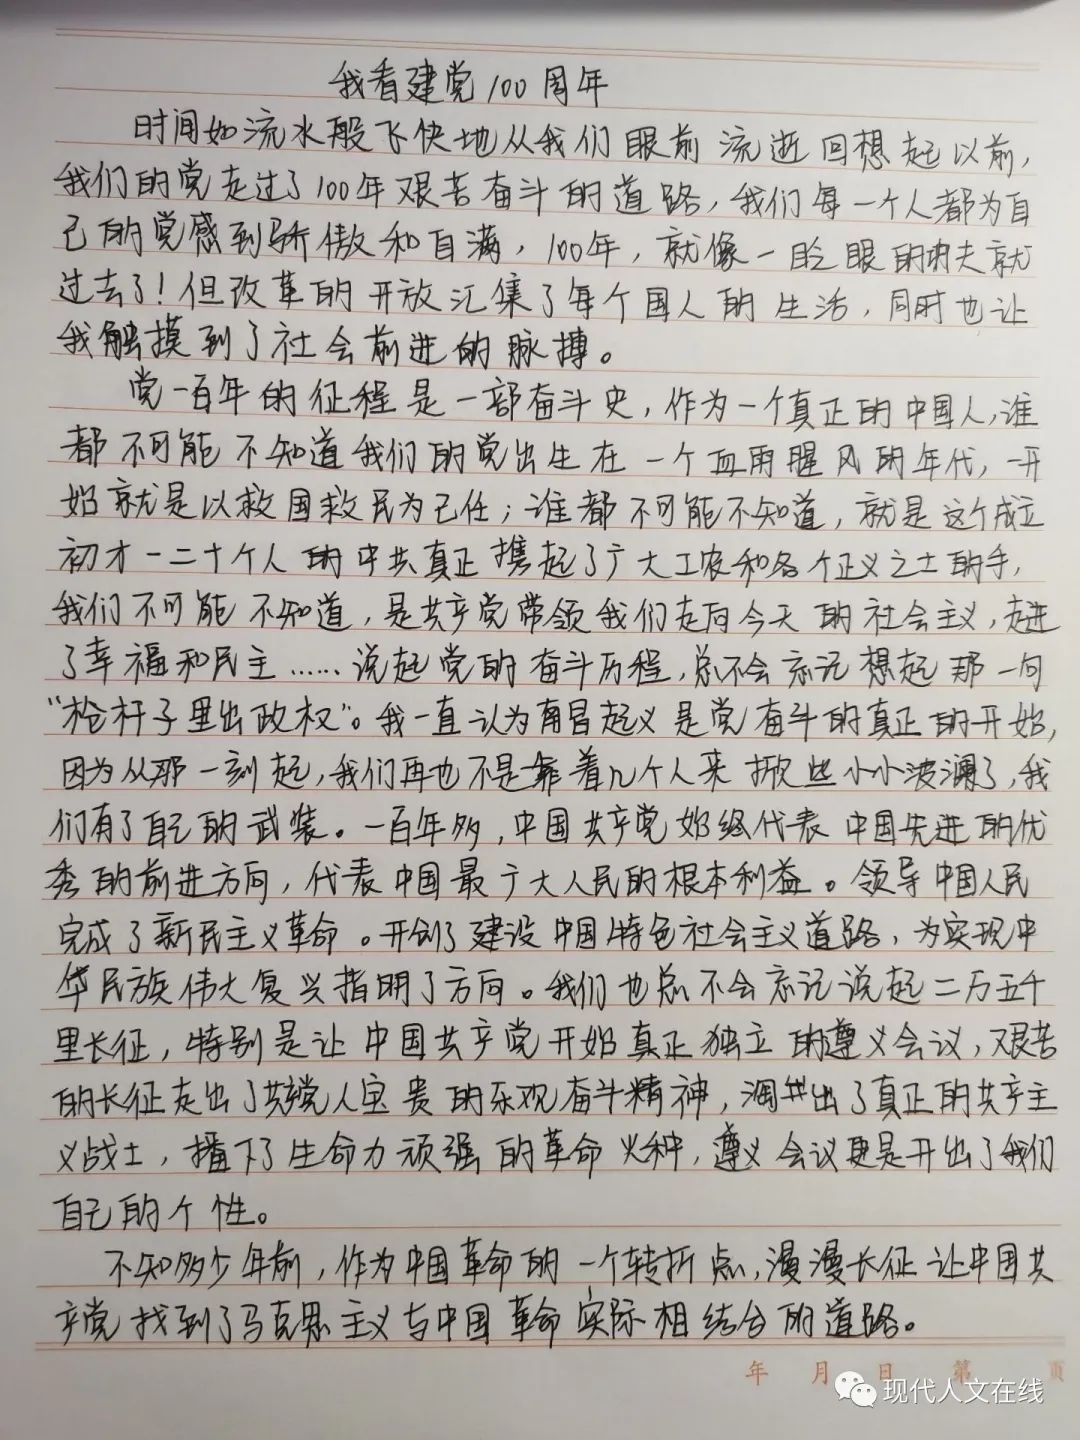 我看建党100周年
时间如流水般飞快地从我们眼前流逝回想起以前，
我们的党走过了100年艰苦奋斗的道路，我们每一个人都为自
己的党感到骄傲和自满，100年，就像一眨眼的功夫就
过去了！但改革的开放汇集了每个国人的生活，同时也让
我触摸到了社会前进的脉搏。
党一百年的征程是一部奋斗史，作为一个真正的中国人，谁
都不可能不知道我们的党出生在一个血雨腥风的年代，一开
始就是以救国救民为己任；谁都不可能不知道，就是这个成立
初才一二十个人的中共真正携起了广大工农和各个正义之士的手，
我们不可能不知道，是共产党带领我们走向今天的社会主义，走进
了幸福和民主……说起党的奋斗历程，总不会忘记想起那一句
“枪杆子里出政权”。我一直认为南昌起义是党奋斗的真正的开始，
因为从那一刻起，我们再也不是靠着几个人来掀些小小波澜了，我
们有了自己的武装。一百年多，中国共产党始终代表中国先进的优
秀的前进方向，代表中国最广大人民的根本利益。领导中国人民
完成了新民主义革命。开创了建设中国特色社会主义道路，为实现中
华民族伟大复兴指明了方向。我们也总不会忘记说起二万五千
里长征，特别是让中国共产党开始真正独立的遵义会议，艰苦
的长征走出了共产党人宝贵的乐观奋斗精神，凋出了真正的共产主
义战士，播下了生命力顽强的革命火种，遵义会议更是开出了我们
自己的个性。
不知多少年前，作为中国革命的一个转折点，漫漫长征让中国共
产党找到了马克思主义与中国革命实际相结合的道路。
年 月 日 第 页
现代人文在线